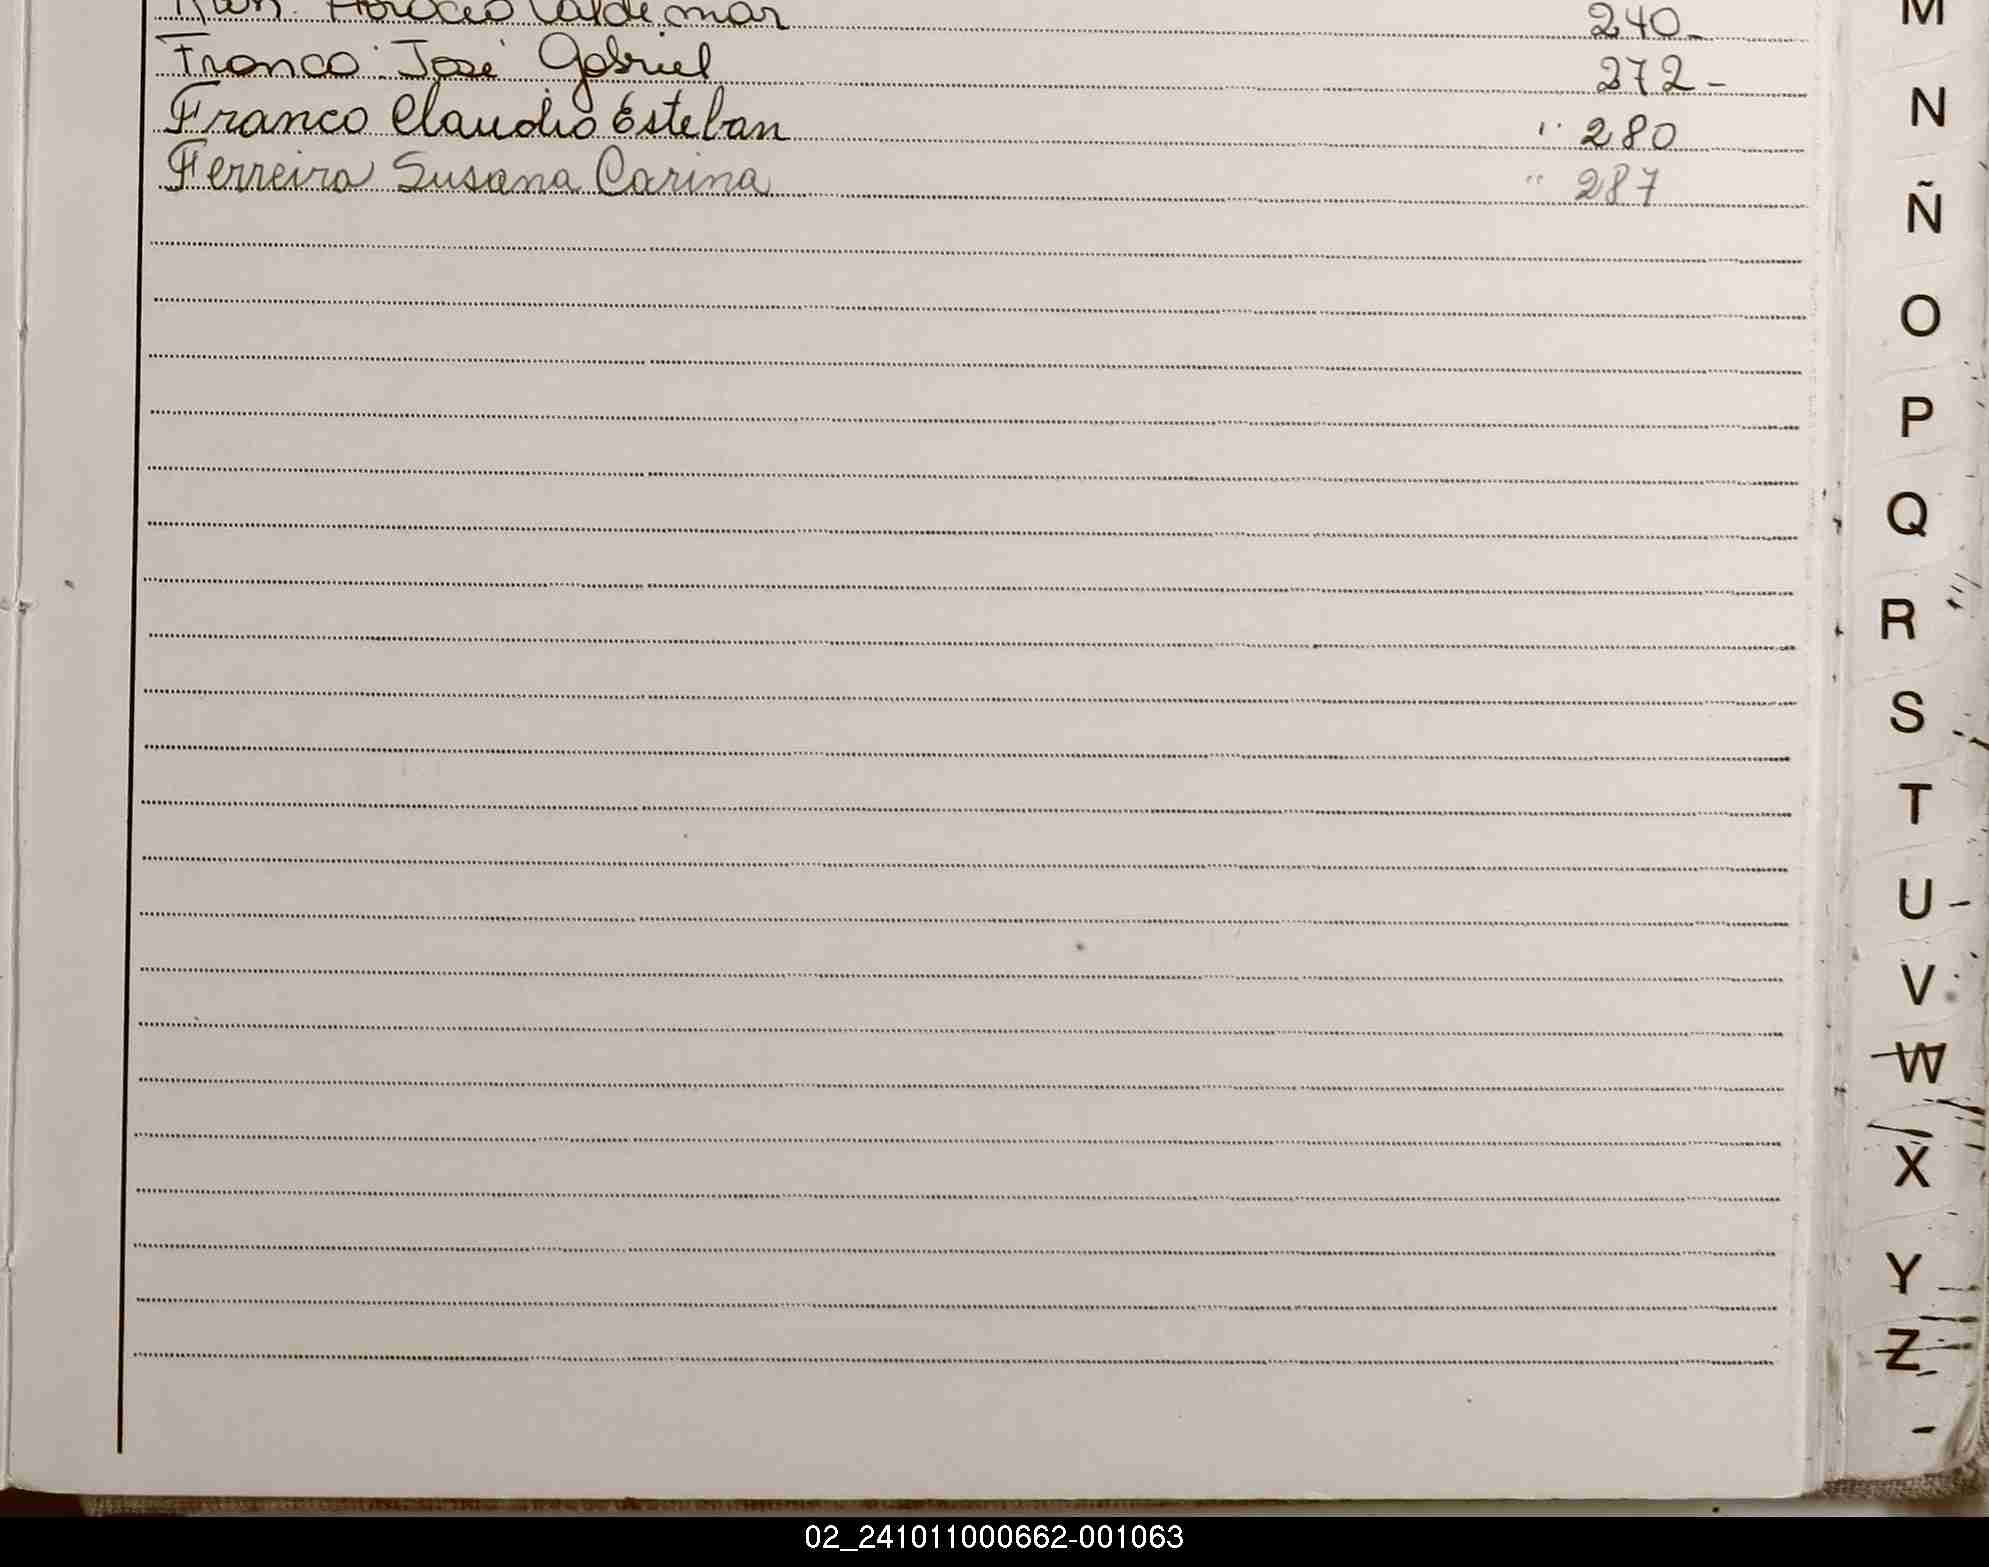 Horacio Valdemar 240-
Franco José Gabriel 272-
Franco Claudio Esteban " 280
Ferreira Susana Carina " 287
M
N
Ñ
O
P
Q
R
S
T
U
V
W
X
Y
Z
02_241011000662-001063